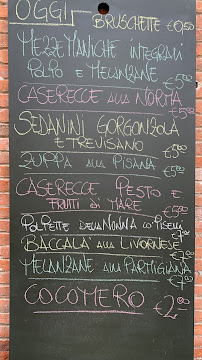 OGGI
BRUSCHETTE €0,50
MEZZE MANICHE INTEGRALI
POLPO E MELANZANE €5,00
CASERECCE ALLA NORMA €5,00
SEDANINI GORGONZOLA
E TREVISANO €5,00
ZUPPA ALLA PISANA €5,00
CASERECCE PESTO E
FRUTTI DI MARE €5,00
POLPETTE DELLA NONNA CO' PISELLI €7,00
BACCALA' ALLA LIVORNESE
MELANZANE ALLA PARMIGIANA
COCOMERO €2,00